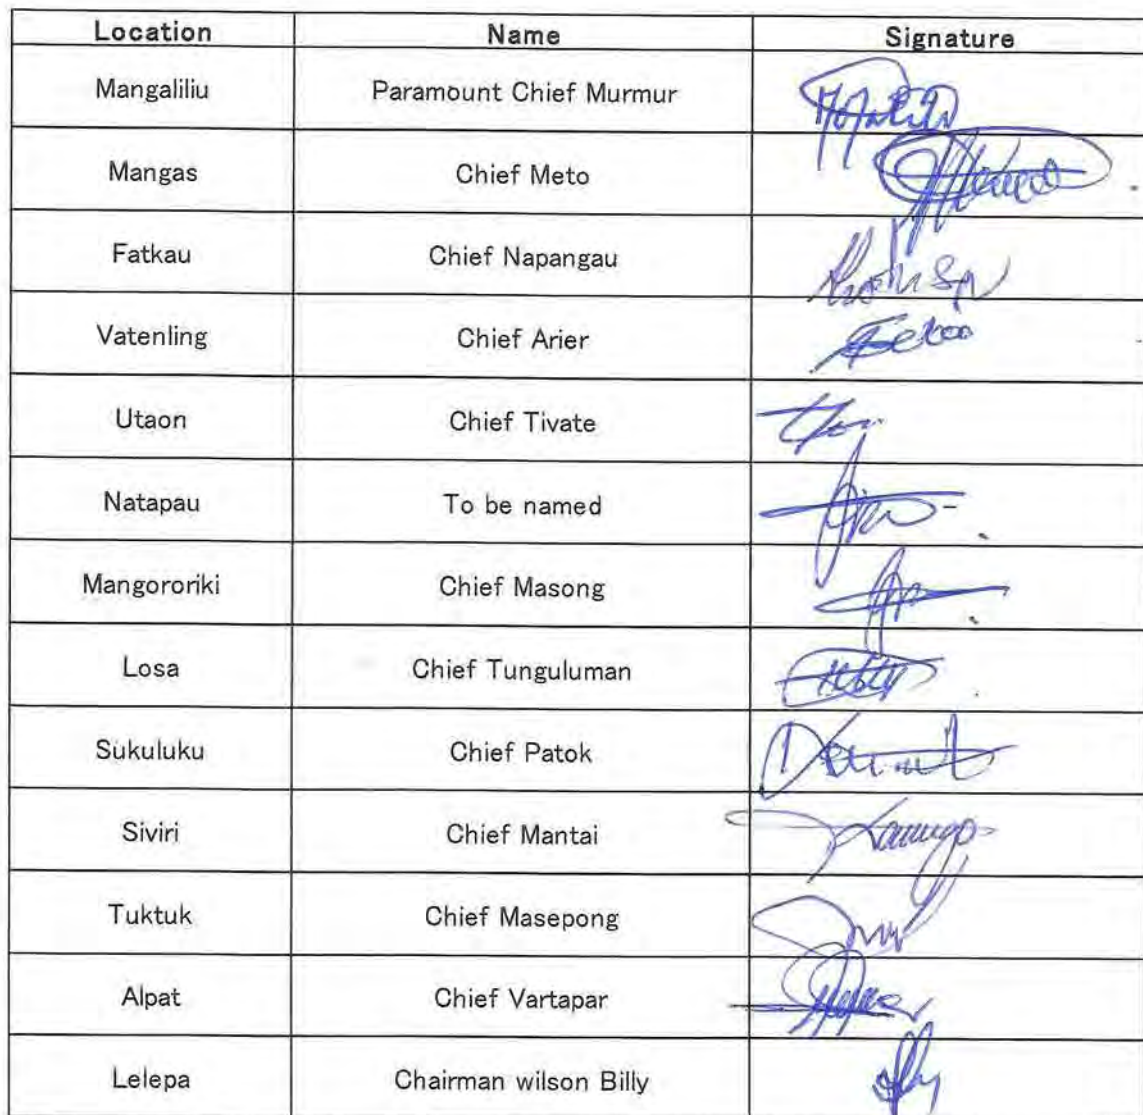 Location Name Signature
Mangaliliu Paramount Chief Murmur
Mangas Chief Meto
Fatkau Chief Napangau
Vatenling Chief Arier
Utaon Chief Tivate
Natapau To be named
Mangororiki Chief Masong
Losa Chief Tunguluman
Sukuluku Chief Patok
Siviri Chief Mantai
Tuktuk Chief Masepong
Alpat Chief Vartapar
Lelepa Chairman wilson Billy